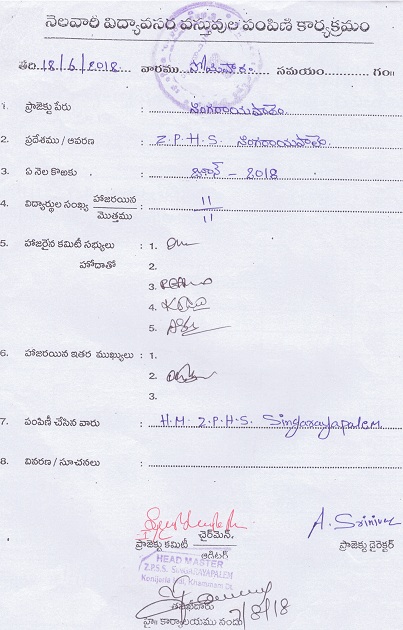 నెలవారీ విద్యావసర వస్తువుల పంపిణి కార్యక్రమం
తేది 18/6/2018 వారము సోమవారం సమయం గం॥
1. ప్రాజెక్టు పేరు : సింగరాయపాలెం
2. ప్రదేశము / ఆవరణ : Z.P.H.S. సింగరాయపాలెం
3. ఏ నెల కొఱకు : జూన్ - 2018
4. విద్యార్థుల సంఖ్య హాజరయిన / మొత్తము : 11 / 11
5. హాజరైన కమిటీ సభ్యులు : 1.
హోదాతో 2.
3.
4.
5.
6. హాజరయిన ఇతర ముఖ్యులు : 1.
2.
3.
7. పంపిణీ చేసిన వారు : H.M. Z.P.H.S. Singarayapalem
8. వివరణ / సూచనలు :
I/C
ప్రాజెక్టు కమిటీ చైర్‌మేన్ / ఆడిటర్
A. Srinivas
ప్రాజెక్టు డైరెక్టర్
HEAD MASTER
Z.P.S.S. SINGARAYAPALEM
Konijerla Mdl, Khammam Dt.
కార్యాలయము నందు 7/8/18